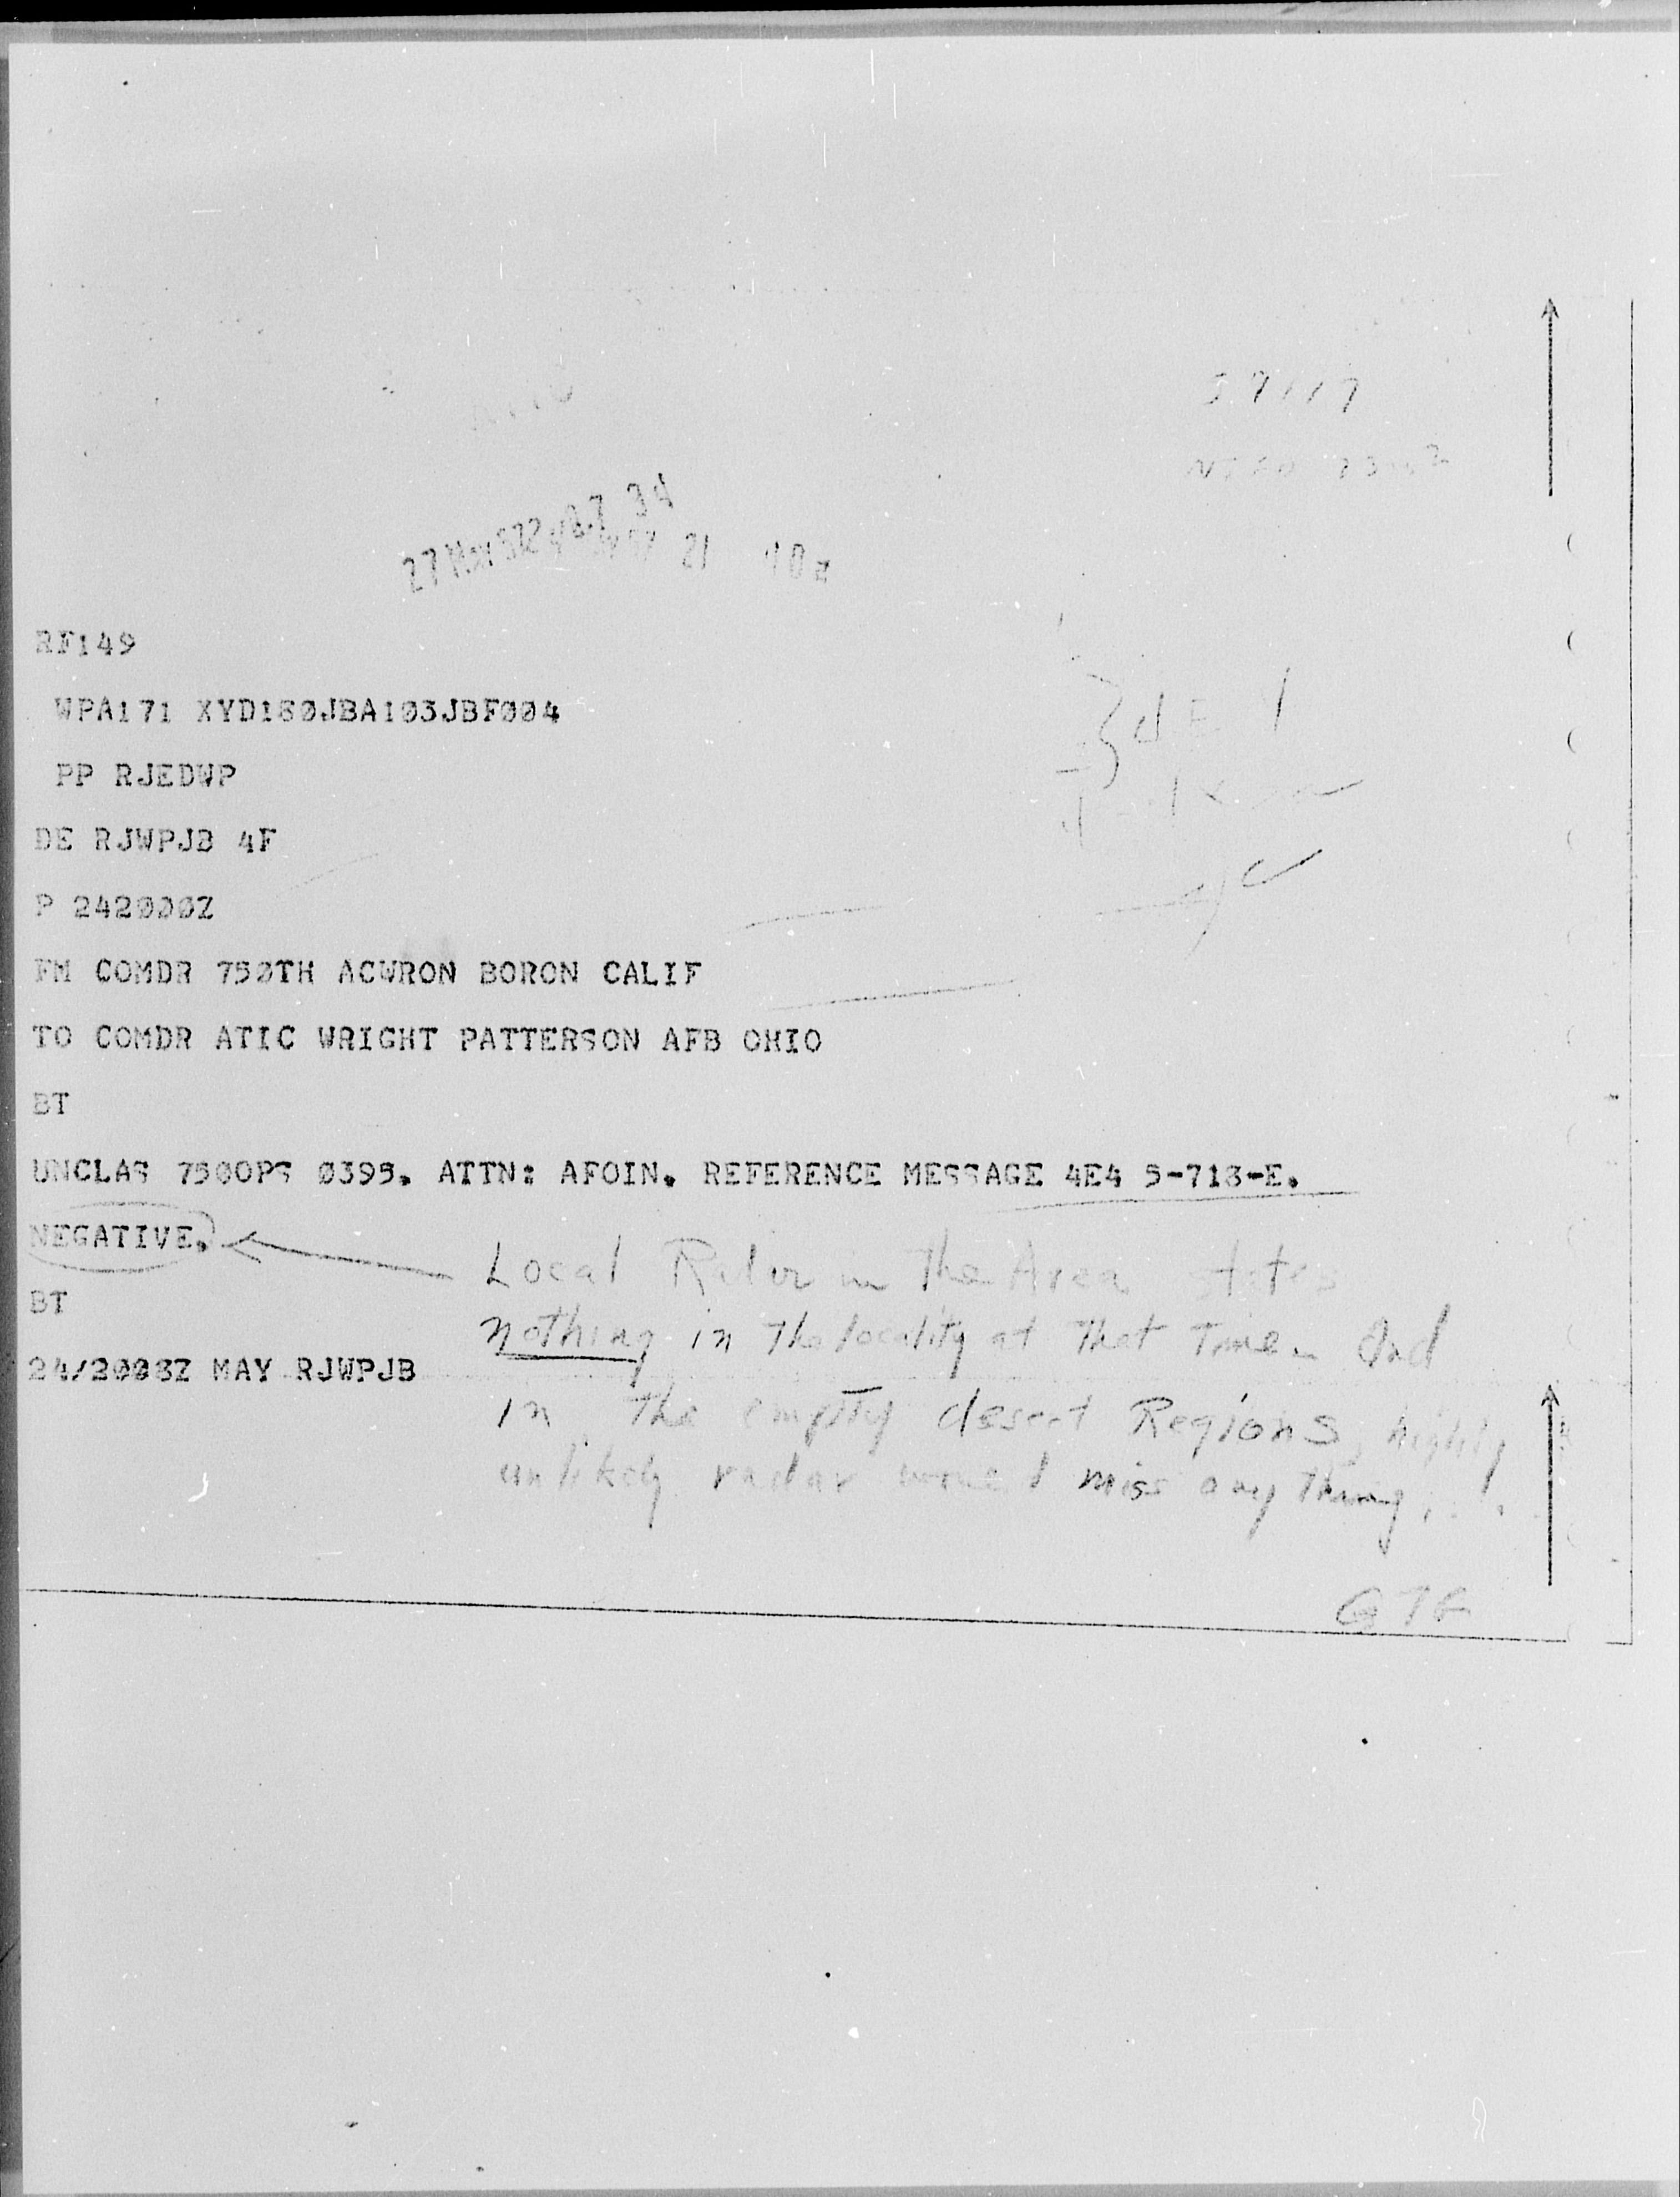 RF149
WPA171 XYD180JBA103JBF004
PP RJEDWP
DE RJWPJB 4F
P 242000Z
FM COMDR 750TH ACWRON BORON CALIF
TO COMDR ATIC WRIGHT PATTERSON AFB OHIO
BT
UNCLAS 750OPS 0395. ATTN: AFOIN. REFERENCE MESSAGE 4E4 5-718-E.
NEGATIVE.
Local Radar in The Area states
BT
nothing in The locality at That Time. And
24/2008Z MAY RJWPJB
in The empty desert Regions, highly
unlikely radar would miss any Thing